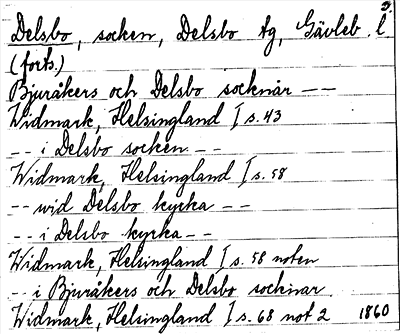 3
Delsbo, socken, Delsbo tg, Gävleb. l
(forts.)
Bjuråkers och Delsbo socknar --
Widmark, Helsingland I s. 43
-- i Delsbo socken --
Widmark, Helsingland I s. 58
-- wid Delsbo kyrka --
-- i Delsbo kyrka --
Widmark, Helsingland I s. 58 noten
-- i Bjuråkers och Delsbo socknar
Widmark, Helsingland I s. 68 not 2 1860